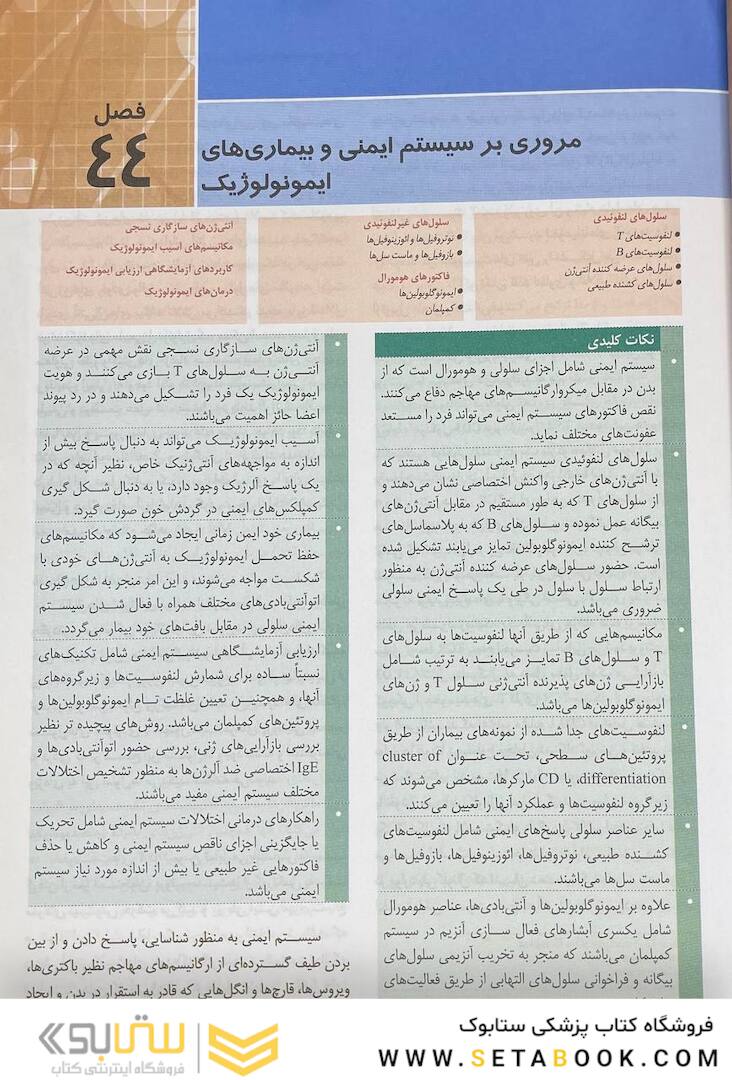 فصل
٤٤
مروری بر سیستم ایمنی و بیماری‌های
ایمونولوژیک
سلول‌های لنفوئیدی
• لنفوسیت‌های T
• لنفوسیت‌های B
• سلول‌های عرضه کننده آنتی‌ژن
• سلول‌های کشنده طبیعی
سلول‌های غیرلنفوئیدی
• نوتروفیل‌ها و ائوزینوفیل‌ها
• بازوفیل‌ها و ماست سل‌ها
فاکتورهای هومورال
• ایمونوگلوبولین‌ها
• کمپلمان
آنتی‌ژن‌های سازگاری نسجی
مکانیسم‌های آسیب ایمونولوژیک
کاربردهای آزمایشگاهی ارزیابی ایمونولوژیک
درمان‌های ایمونولوژیک
نکات کلیدی
• سیستم ایمنی شامل اجزای سلولی و هومورال است که از
بدن در مقابل میکروارگانیسم‌های مهاجم دفاع می‌کنند.
نقص فاکتورهای سیستم ایمنی می‌تواند فرد را مستعد
عفونت‌های مختلف نماید.
• سلول‌های لنفوئیدی سیستم ایمنی سلول‌هایی هستند که
با آنتی‌ژن‌های خارجی واکنش اختصاصی نشان می‌دهند و
از سلول‌های T که به طور مستقیم در مقابل آنتی‌ژن‌های
بیگانه عمل نموده و سلول‌های B که به پلاسماسل‌های
ترشح کننده ایمونوگلوبولین تمایز می‌یابند تشکیل شده
است. حضور سلول‌های عرضه کننده آنتی‌ژن به منظور
ارتباط سلول با سلول در طی یک پاسخ ایمنی سلولی
ضروری می‌باشد.
• مکانیسم‌هایی که از طریق آنها لنفوسیت‌ها به سلول‌های
T و سلول‌های B تمایز می‌یابند به ترتیب شامل
بازآرایی ژن‌های پذیرنده آنتی‌ژنی سلول T و ژن‌های
ایمونوگلوبولین‌ها می‌باشد.
• لنفوسیت‌های جدا شده از نمونه‌های بیماران از طریق
پروتئین‌های سطحی، تحت عنوان cluster of
differentiation، یا CD مارکرها، مشخص می‌شوند که
زیرگروه لنفوسیت‌ها و عملکرد آنها را تعیین می‌کنند.
• سایر عناصر سلولی پاسخ‌های ایمنی شامل لنفوسیت‌های
کشنده طبیعی، نوتروفیل‌ها، ائوزینوفیل‌ها، بازوفیل‌ها و
ماست سل‌ها می‌باشند.
• علاوه بر ایمونوگلوبولین‌ها و آنتی‌بادی‌ها، عناصر هومورال
شامل یکسری آبشارهای فعال سازی آنزیم در سیستم
کمپلمان می‌باشند که منجر به تخریب آنزیمی سلول‌های
بیگانه و فراخوانی سلول‌های التهابی از طریق فعالیت‌های
• آنتی‌ژن‌های سازگاری نسجی نقش مهمی در عرضه
آنتی‌ژن به سلول‌های T بازی می‌کنند و هویت
ایمونولوژیک یک فرد را تشکیل می‌دهند و در رد پیوند
اعضا حائز اهمیت می‌باشند.
• آسیب ایمونولوژیک می‌تواند به دنبال پاسخ بیش از
اندازه به مواجهه‌های آنتی‌ژنیک خاص، نظیر آنچه که در
یک پاسخ آلرژیک وجود دارد، یا به دنبال شکل گیری
کمپلکس‌های ایمنی در گردش خون صورت گیرد.
• بیماری خود ایمن زمانی ایجاد می‌شود که مکانیسم‌های
حفظ تحمل ایمونولوژیک به آنتی‌ژن‌های خودی با
شکست مواجه می‌شوند، و این امر منجر به شکل گیری
اتوآنتی‌بادی‌های مختلف همراه با فعال شدن سیستم
ایمنی سلولی در مقابل بافت‌های خود بیمار می‌گردد.
• ارزیابی آزمایشگاهی سیستم ایمنی شامل تکنیک‌های
نسبتاً ساده برای شمارش لنفوسیت‌ها و زیرگروه‌های
آنها، و همچنین تعیین غلظت تام ایمونوگلوبولین‌ها و
پروتئین‌های کمپلمان می‌باشد. روش‌های پیچیده تر نظیر
بررسی بازآرایی‌های ژنی، بررسی حضور اتوآنتی‌بادی‌ها و
IgE اختصاصی ضد آلرژن‌ها به منظور تشخیص اختلالات
مختلف سیستم ایمنی مفید می‌باشند.
• راهکارهای درمانی اختلالات سیستم ایمنی شامل تحریک
یا جایگزینی اجزای ناقص سیستم ایمنی و کاهش یا حذف
فاکتورهایی غیر طبیعی یا بیش از اندازه مورد نیاز سیستم
ایمنی می‌باشد.
سیستم ایمنی به منظور شناسایی، پاسخ دادن و از بین
بردن طیف گسترده‌ای از ارگانیسم‌های مهاجم نظیر باکتری‌ها،
ویروس‌ها، قارچ‌ها و انگل‌هایی که قادر به استقرار در بدن و ایجاد
فروشگاه کتاب پزشکی ستابوک
WWW.SETABOOK.COM
ستابوک
فروشگاه اینترنتی کتاب